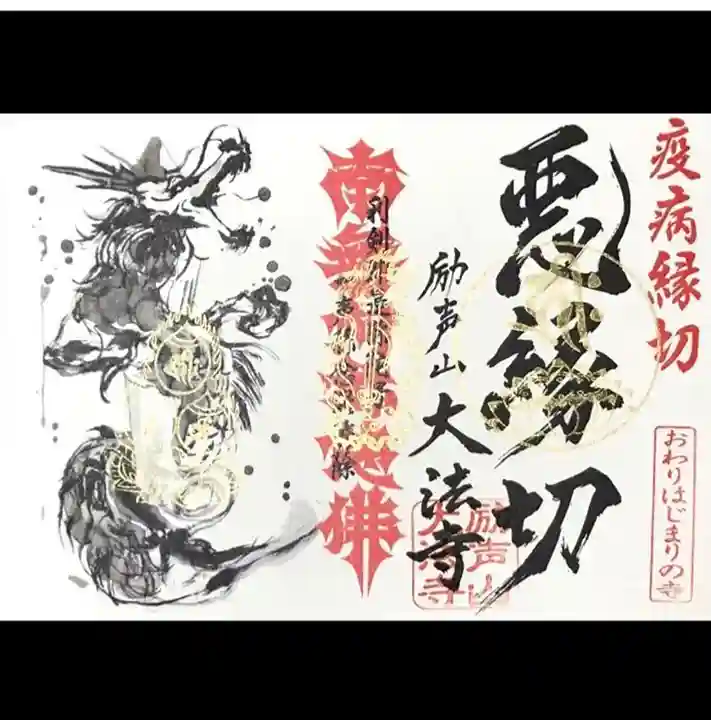 疫病縁切
おわりはじまりの寺
悪縁切
励声山 大法寺
励声山
大法寺
利剣即是
南無阿弥陀佛